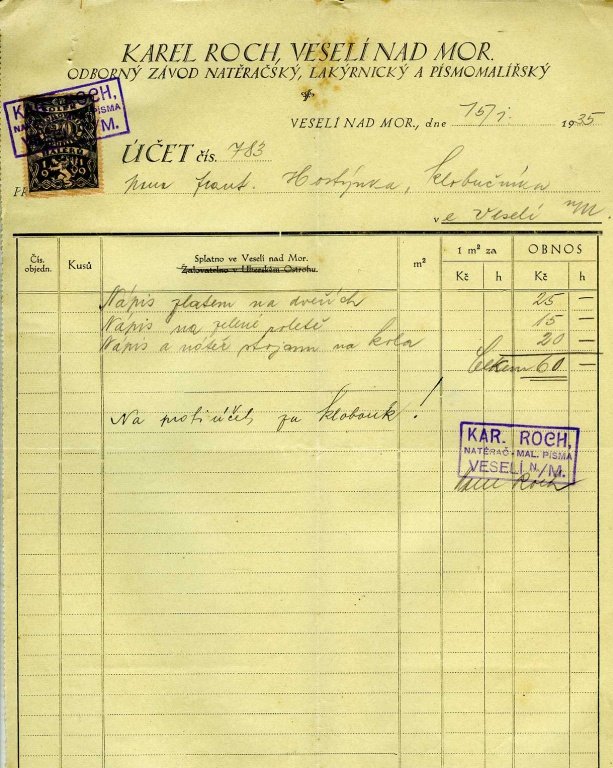 KAREL ROCH, VESELÍ NAD MOR.
ODBORNÝ ZÁVOD NATĚRAČSKÝ, LAKÝRNICKÝ A PÍSMOMALÍŘSKÝ
VESELÍ NAD MOR., dne 15/1. 1935
KAR. ROCH,
NATĚRAČ PÍSMA
VESELÍ N./M.
ÚČET čís. 783
pana frant. Hostýnka, kloboučníka
v e Veselí n/M
Čís. objedn. Kusů Splatno ve Veselí nad Mor. m² 1 m² za OBNOS
Žalovatelno v Uherském Ostrohu. Kč h Kč h
Nápis zlatem na dveřích 25 —
Nápis na zelené roletě 15 —
Nápis a nátěr stojanu na kola 20 —
Celkem 60 —
Na protiúčet za klobouk!
KAR. ROCH,
NATĚRAČ - MAL. PÍSMA
VESELÍ N./M.
Karel Roch